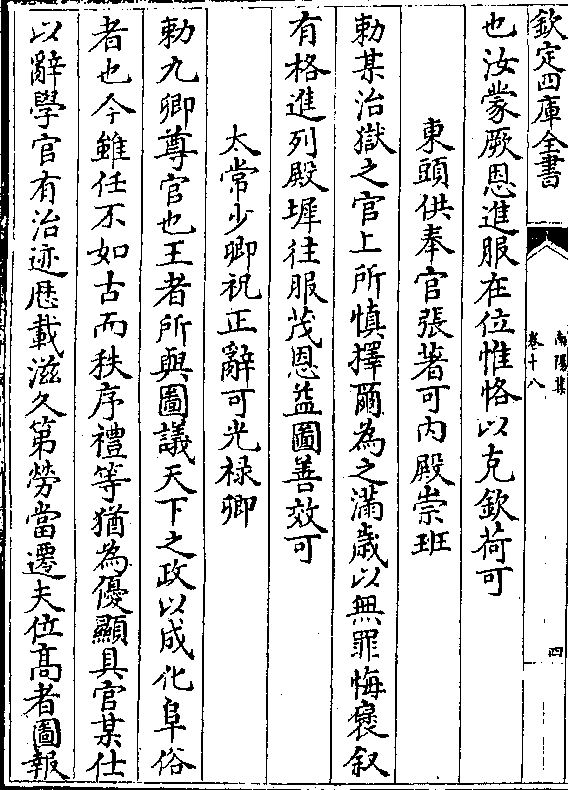 欽定四庫全書
南陽集
卷十八
四
也汝蒙厥恩進服在位惟恪以克欽荷可
東頭供奉官張著可内殿崇班
勅某治獄之官上所慎擇爾為之滿歲以無罪悔褒叙
有格進列殿墀往服茂恩益圖善效可
太常少卿祝正辭可光禄卿
勅九卿尊官也王者所與圖議天下之政以成化阜俗
者也今雖任不如古而秩序禮等猶為優顯具官某仕
以辭學官有治迹歴載滋久第勞當遷夫位髙者圖報